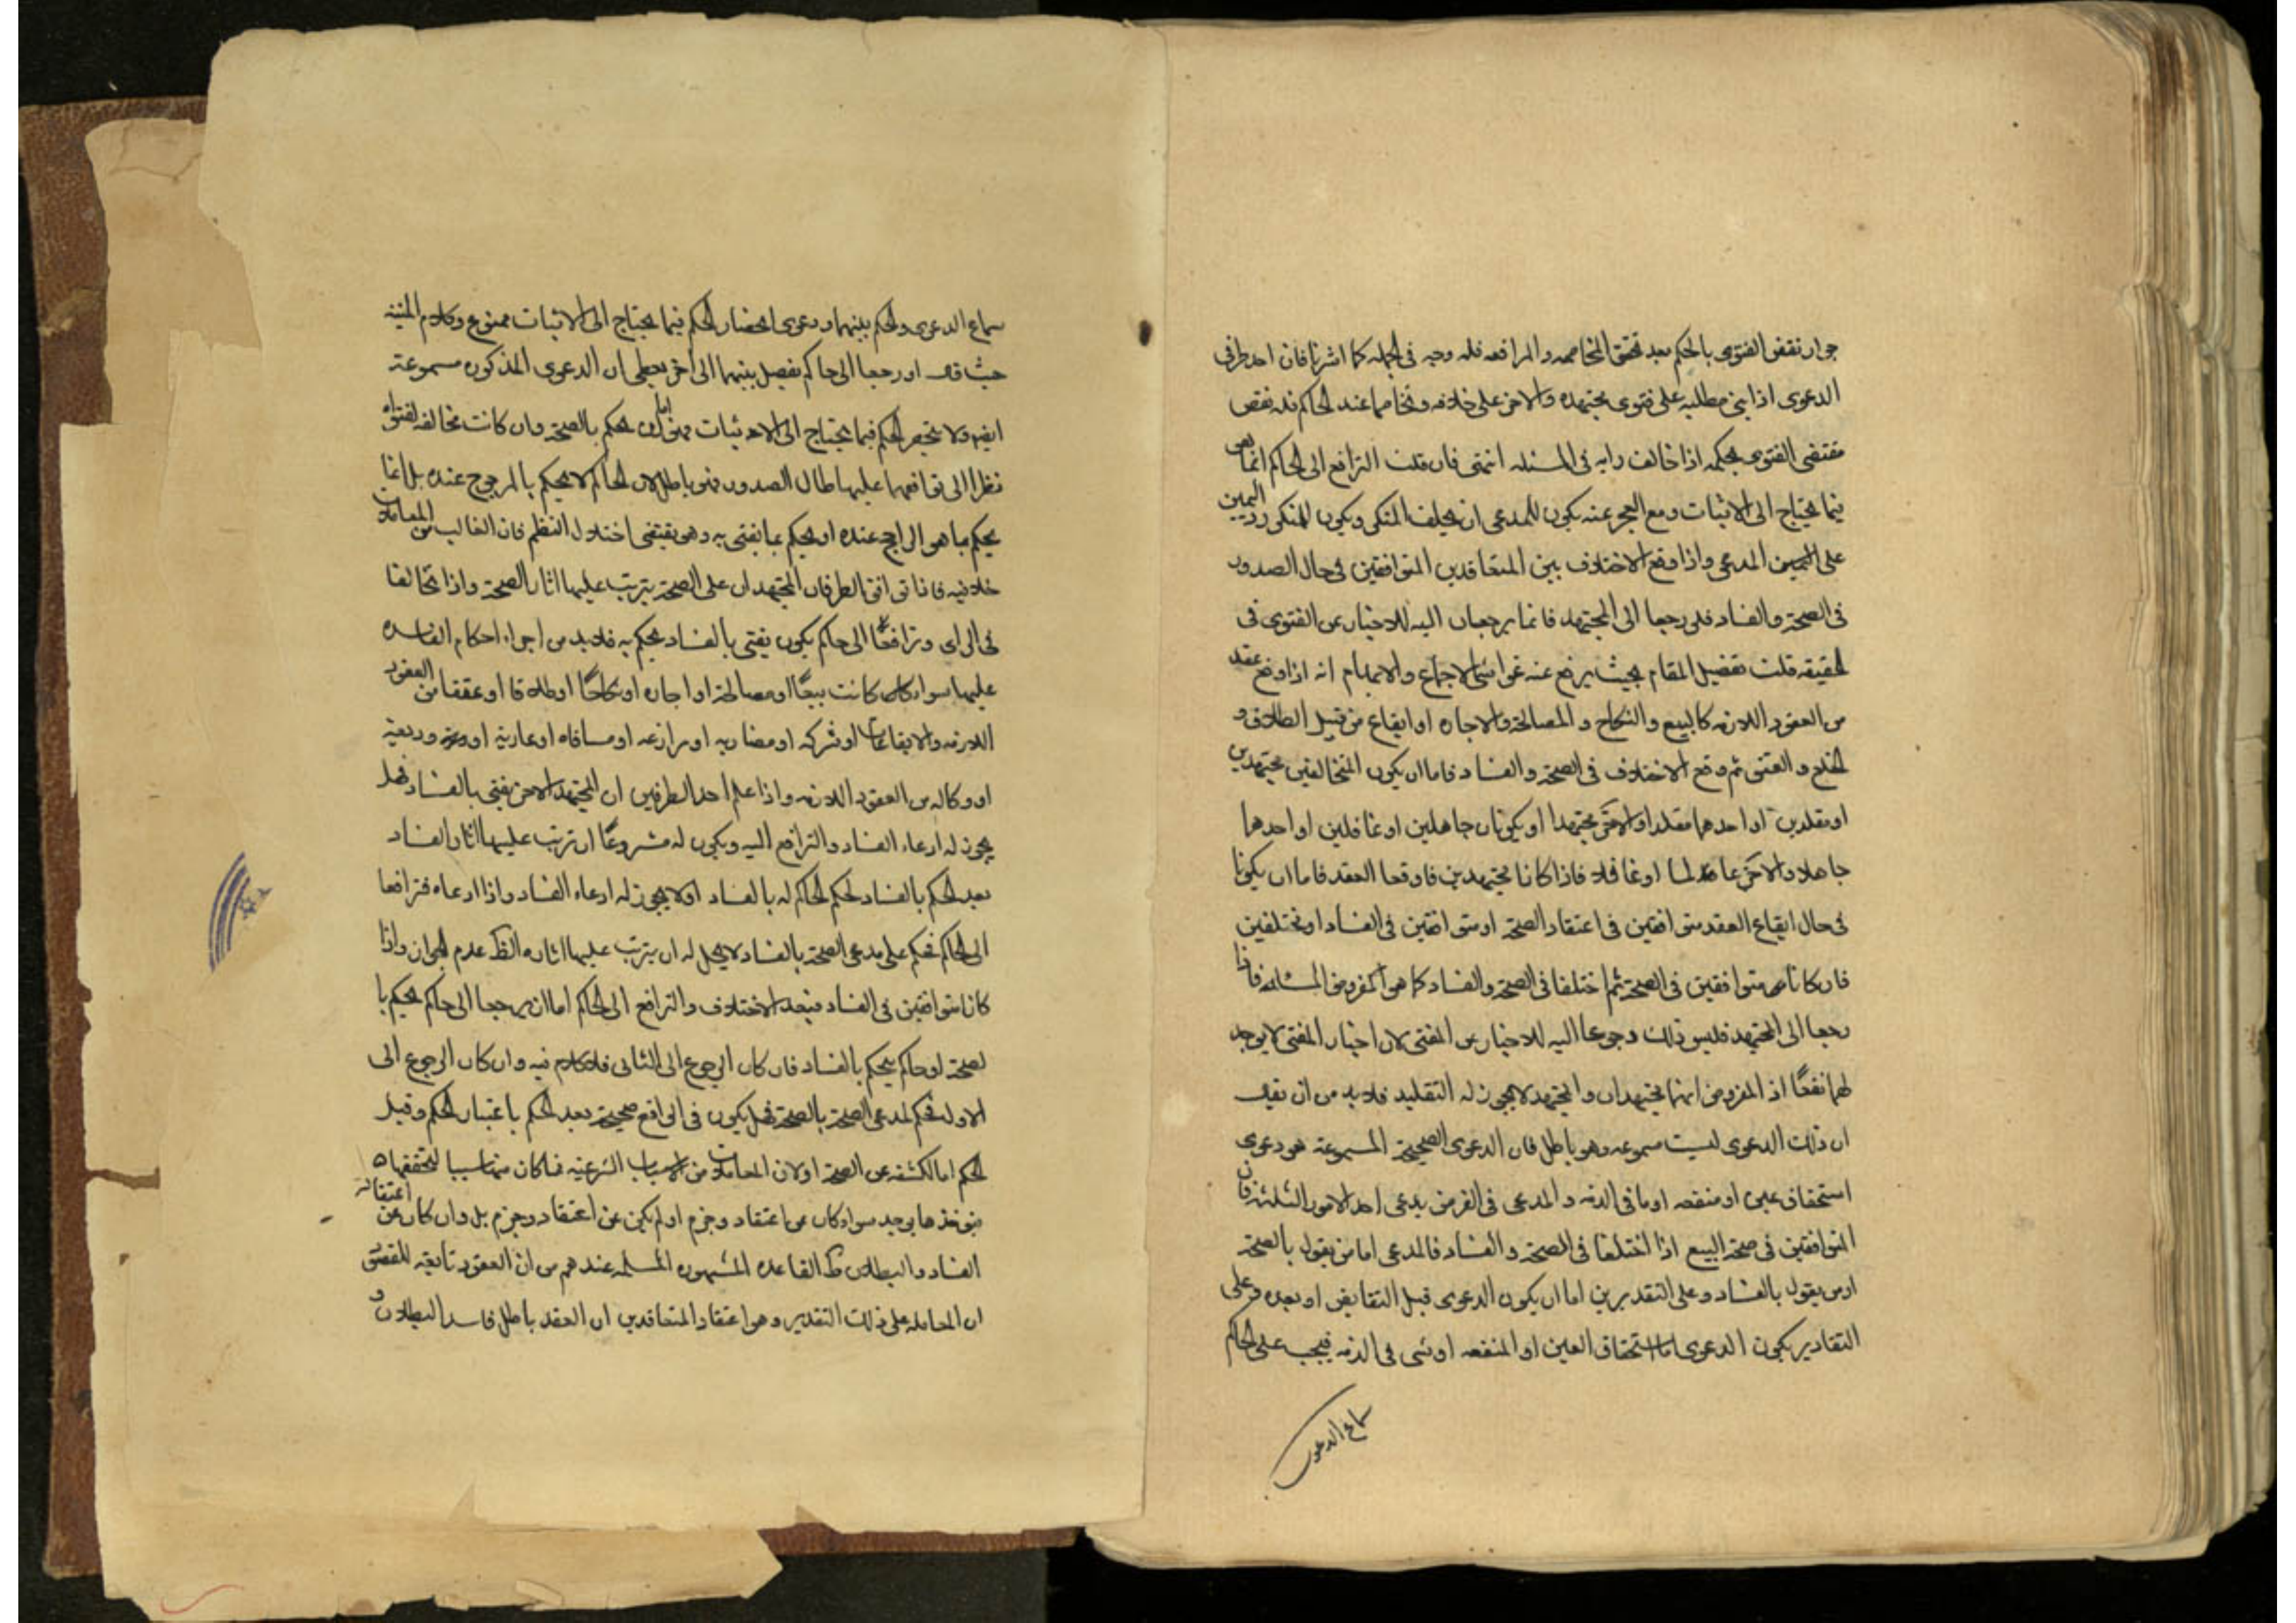 جواز نقض الفتوى بالحكم بعد تحقق المخاصمه والمرافعه فله وجه فى الجمله كما اشرنا فان احد طرفى
الدعوى اذا بنى مطلبه على فتوى مجتهده والاخر على خلافه وتخاصما عند الحاكم فله نقض
مقتضى الفتوى بحكمه اذا خالف رايه فى المسئله انتهى فان قلت الترافع الى الحاكم انما هو
فيما يحتاج الى الاثبات ومع العجز عنه يكون للمدعى ان يحلف المنكر ويكون للمنكر رد اليمين
على المدعى واذا وقع الاختلاف بين المتعاقدين المتوافقين فى حال الصدور
فى الصحة والفساد فلو رجعا الى المجتهد فانما يرجعان اليه للاخبار عن الفتوى فى
الحقيقه قلت تفصيل المقام بحيث يرفع عنه غواشى الاجماع والابهام انه اذا وقع عقد
من العقود اللازمه كالبيع والنكاح و المصالحة والاجاره او ايقاع من قبيل الطلاق و
الخلع و العتق ثم وقع الاختلاف فى الصحة و الفساد فاما ان يكون المتخالفين مجتهدين
او مقلدين او احدهما مقلدا والاخر مجتهدا او يكونان جاهلين او غافلين او احدهما
جاهلا والاخر عالما او غافلا فاذا كانا مجتهدين فاوقعا العقد فاما ان يكونا
فى حال ايقاع العقد متوافقين فى اعتقاد الصحة او متوافقين فى الفساد او مختلفين
فان كانا متوافقين فى الصحة ثم اختلفا فى الصحة والفساد كما هو المفروض المسئله فاذا
رجعا الى المجتهد فليس ذلك رجوعا اليه للاخبار عن المفتى لان اخبار المفتى لا يوجد
لهما نفعًا اذ المفروض انهما مجتهدان و المجتهد لا يجوز له التقليد فلا بد من ان يقال
ان ذلك الدعوى ليست مسموعه وهو باطل فان الدعوى الصحيحة المسموعة هو دعوى
استحقاق عين او منفعه او ما فى الذمه و المدعى فى الفرض يدعى احد الامور الثلثه فان
المتوافقين فى صحة البيع اذا اختلفا فى الصحة و الفساد فالمدعى اما من يقول بالصحة
او من يقول بالفساد و على التقديرين اما ان يكون الدعوى قبل التقابض او بعده و على
التقادير يكون الدعوى اما استحقاق العين او المنفعه او شى فى الذمه فيجب على الحاكم
سماع الدعوى
سماع الدعوى والحكم بينهما ودعوى انحصار الحكم فيما يحتاج الى الاثبات ممنوع وكلام المنيه
حيث قال او رجعا الى حاكم يفصل بينهما الى اخر يعطى ان الدعوى المذكور مسموعة
ايضا ولا ينحصر الحكم فيما يحتاج الى الاثبات اما ان يحكم بالصحة وان كانت مخالفه لفتواه
نظرا الى توافقهما عليها حال الصدور فهو باطل لان الحاكم لا يحكم بالمرجوح عنده بل انما
يحكم بما هو الراجح عنده او يحكم بما يفتى به وهو يقتضى اختلال النظم فان الغالب من المعاملات
خلافيه فاذا توافق الطرفان المجتهدان على الصحة يترتب عليها اثار الصحة واذا تخالفا
فى الراى و ترافعا الى حاكم يكون يفتى بالفساد يحكم به فلا بد من اجراء احكام الفاسده
عليها سواء كانت بيعًا او مصالحة او اجاره او نكاحًا او طلاقا او عتقا من العقود
اللازمه والايقاعات او شركه او مضاربه او مزارعه او مساقاه او عارية او وديعة
او وكاله من العقود اللازمه واذا علم احد الطرفين ان المجتهد الاخر يفتى بالفساد فهل
يجوز له ادعاء الفساد والترافع اليه ويكون له مشروعًا ان ترتب عليها اثار الفساد
بعد الحكم بالفساد لحكم الحاكم له بالفساد او لا يجوز له ادعاء الفساد واذا ادعاه فترافعا
الى الحاكم فحكم على مدعى الصحة بالفساد لا يحل له ان يترتب عليها اثاره الظ عدم الجواز واذا
كانا متوافقين فى الفساد فبعد الاختلاف والترافع الى الحاكم اما ان يرجعا الى حاكم يحكم با
لصحة او حاكم يحكم بالفساد فان كان الرجوع الى الثانى فلا كلام فيه وان كان الرجوع الى
الاول فحكم لمدعى الصحة بالصحة فهل يكون فى الواقع صحيحة بعد الحكم باعتبار الحكم وقبل
الحكم اما لكشفه عن الصحة او لان المعاملات من الاسباب الشرعيه فما كان سببا لتحققها
يوجد سواء كان عن اعتقاد وجزم او لم يكن عن اعتقاد وجزم بل وان كان عن اعتقاد
الفساد والبطلان ظ القاعده المشهوره المسلمه عندهم من ان العقود تابعه للقصود
ان المعامله على ذلك التقدير وهو اعتقاد المتعاقدين ان العقد باطل فاسد البطلان و